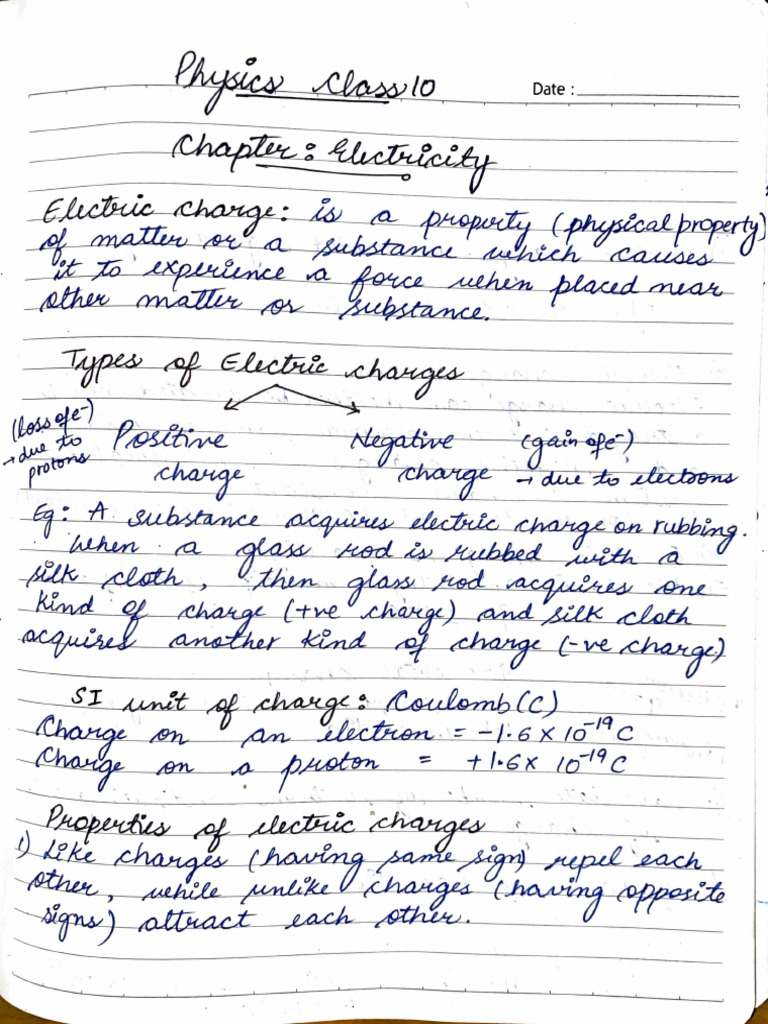 Physics Class 10
Date :
Chapter: Electricity
Electric charge: is a property (physical property)
of matter or a substance which causes
it to experience a force when placed near
other matter or substance.
Types of Electric charges
(loss of e-)
→ due to
protons
Positive
charge
Negative
charge
(gain of e-)
→ due to electrons
Eg: A substance acquires electric charge on rubbing.
When a glass rod is rubbed with a
silk cloth, then glass rod acquires one
kind of charge (+ve charge) and silk cloth
acquires another kind of charge (-ve charge)
SI unit of charge: Coulomb (C)
Charge on an electron = -1.6 × 10⁻¹⁹ C
Charge on a proton = +1.6 × 10⁻¹⁹ C
Properties of electric charges
1) Like charges (having same sign) repel each
other, while unlike charges (having opposite
signs) attract each other.